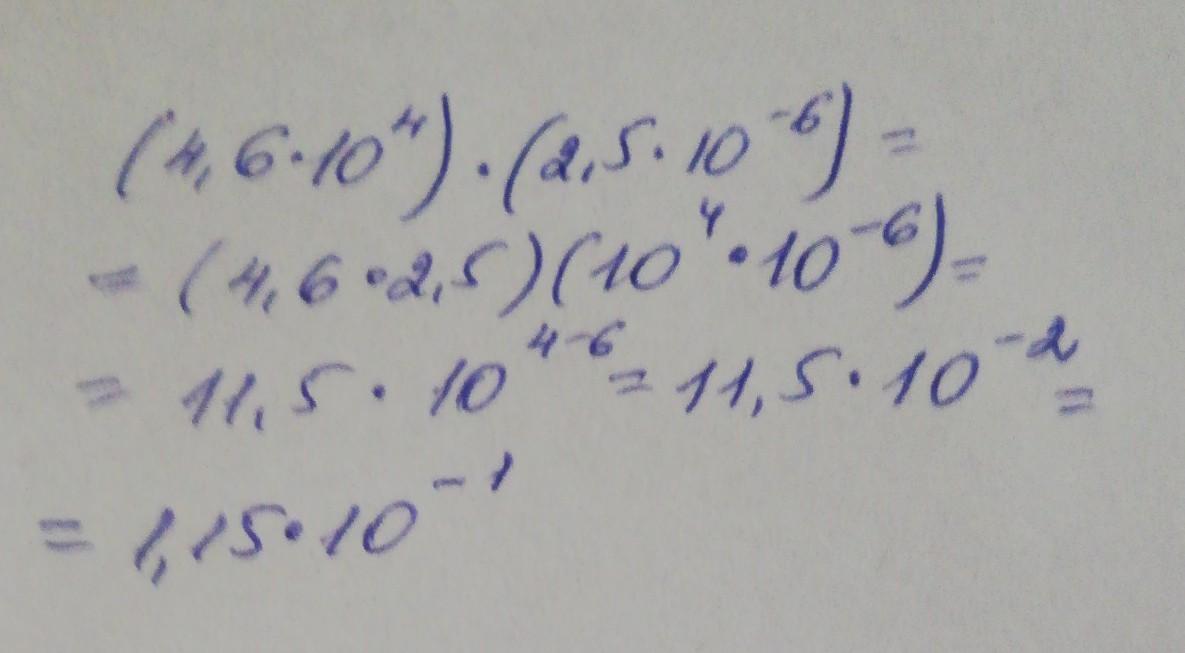 (4,6·10⁴)·(2,5·10⁻⁶)=
=(4,6·2,5)(10⁴·10⁻⁶)=
=11,5·10⁴⁻⁶=11,5·10⁻²=
=1,15·10⁻¹